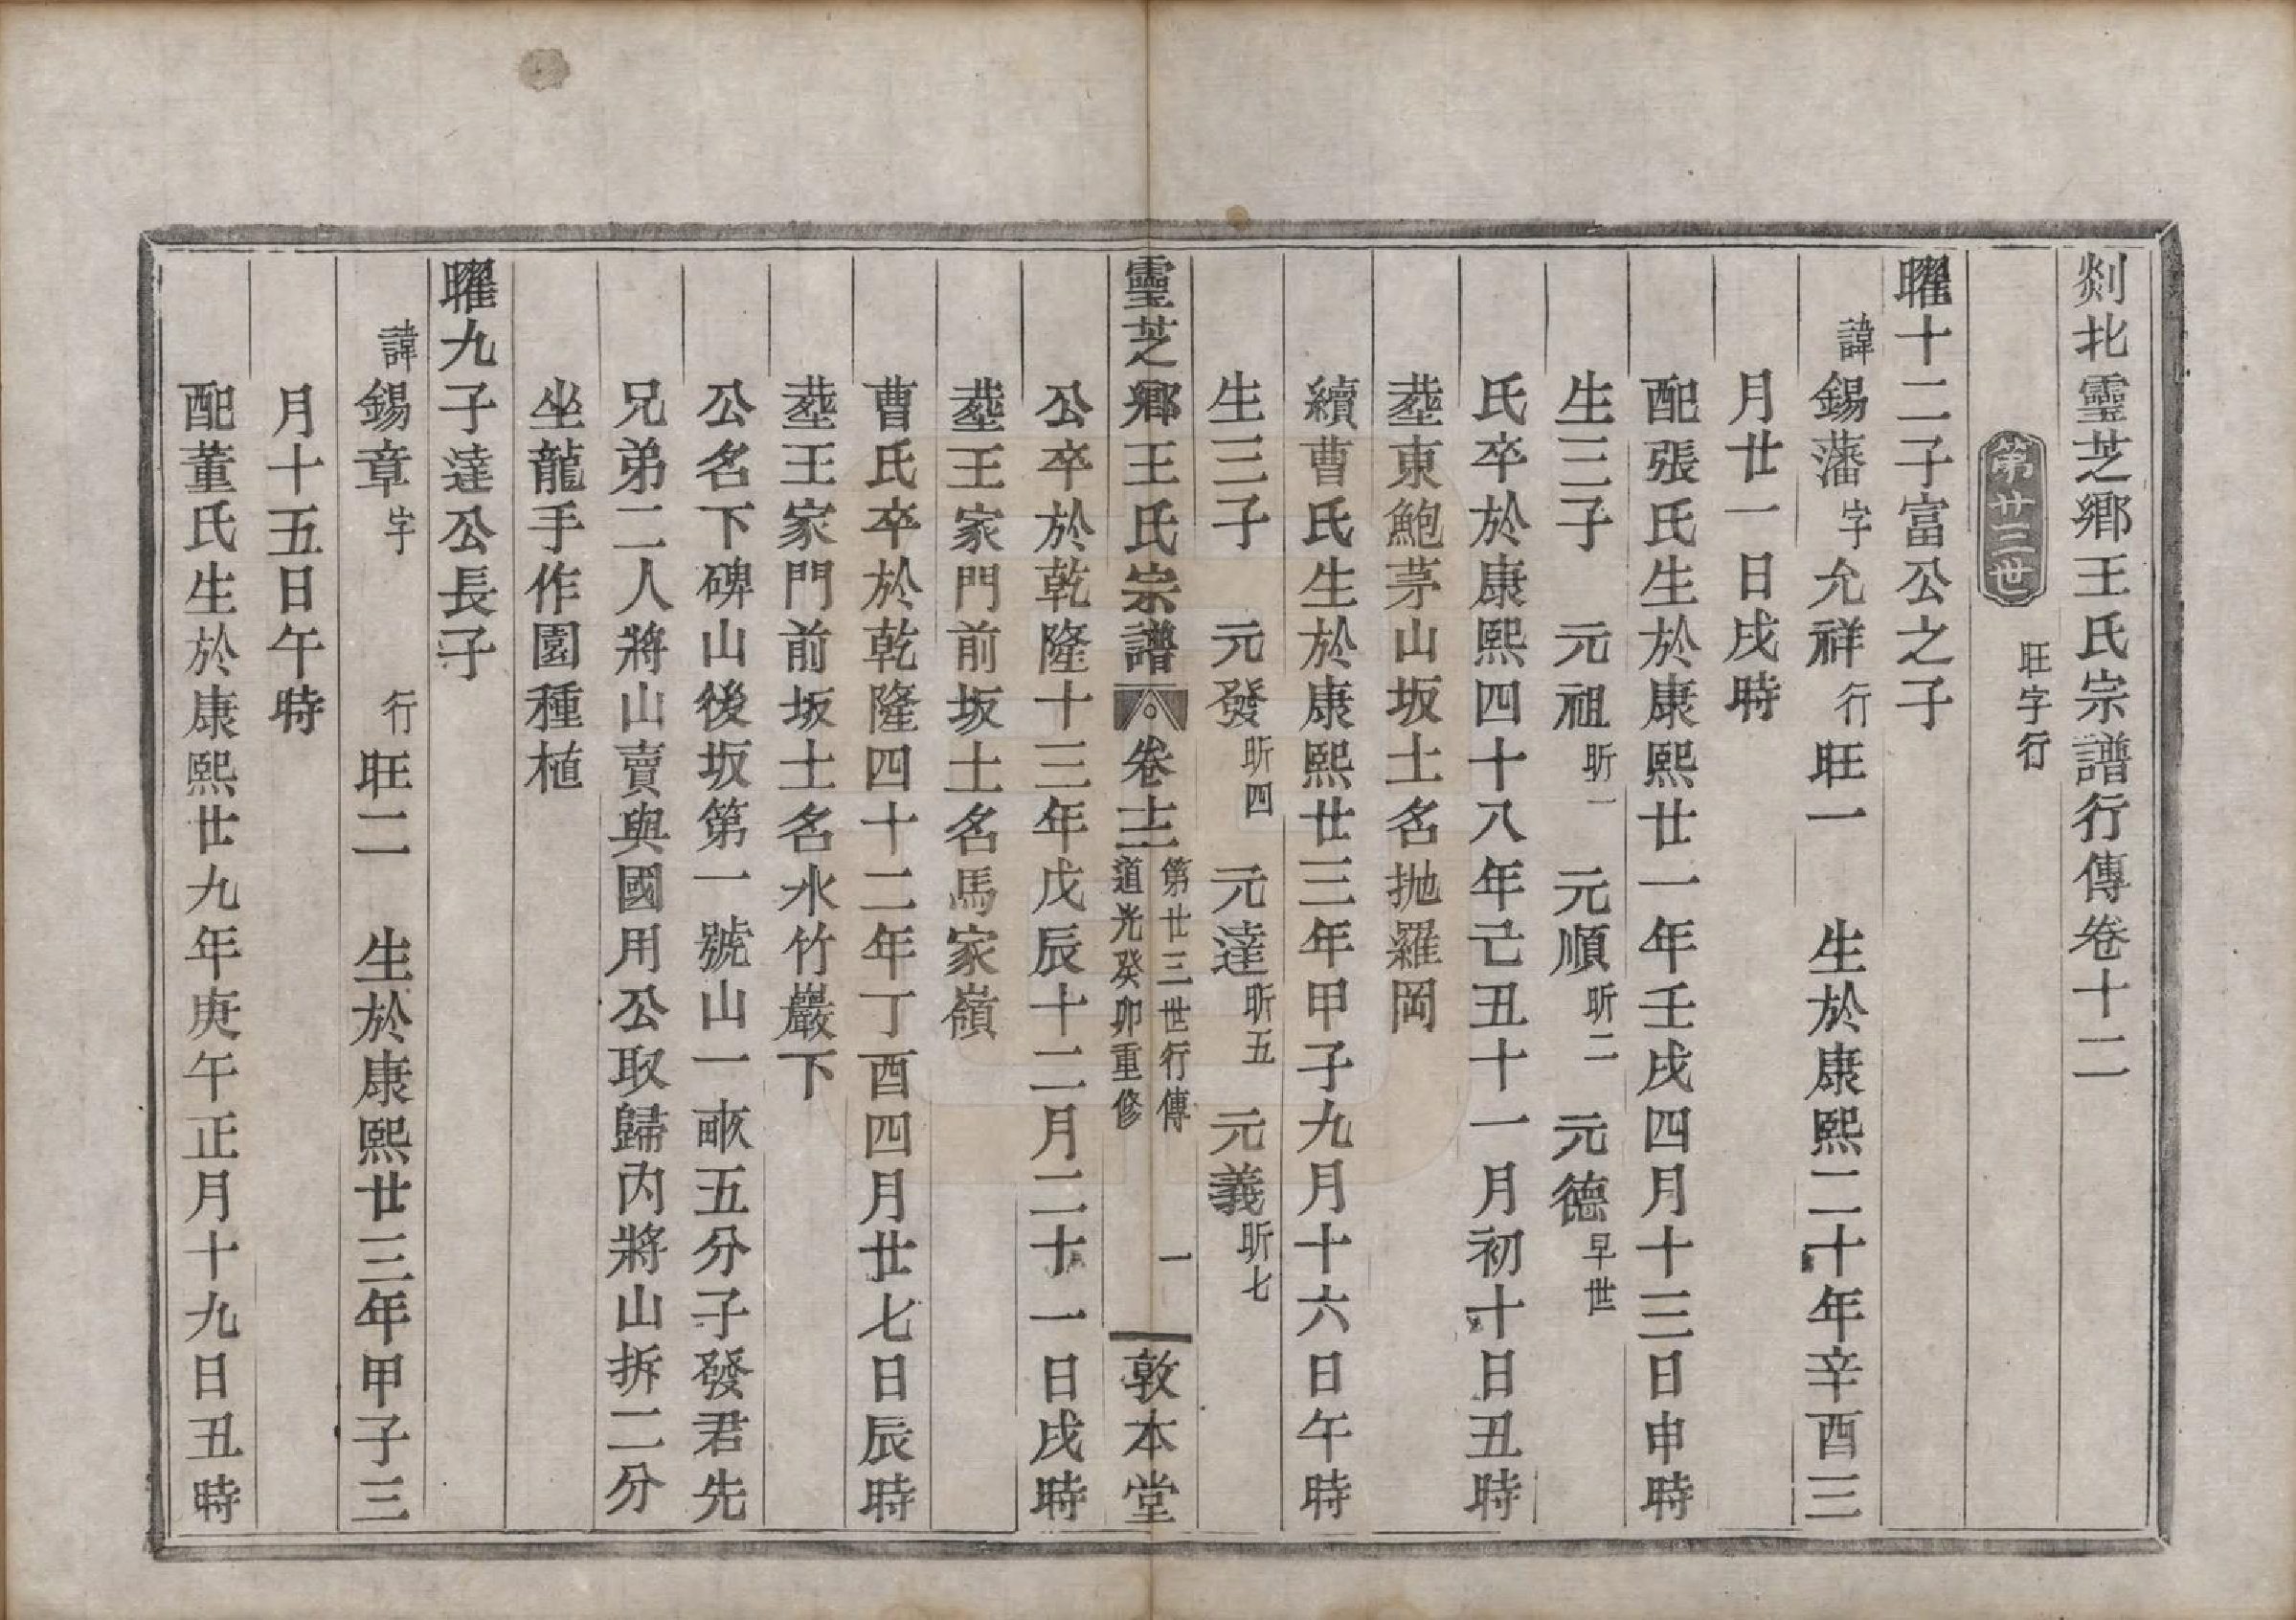 剡北靈芝鄉王氏宗譜行傳卷十二
第廿三世 旺字行
曜十二子富公之子
諱錫藩字允祥行旺一 生於康熙二十年辛酉三
月廿一日戌時
配張氏生於康熙廿一年壬戌四月十三日申時
生三子 元祖昕一 元順昕二 元德早世
氏卒於康熙四十八年己丑十一月初十日丑時
塟東鮑茅山坂土名拋羅岡
續曹氏生於康熙廿三年甲子九月十六日午時
生三子 元發昕四 元達昕五 元義昕七
靈芝鄉王氏宗譜 卷十二 第廿三世行傳 一 道光癸卯重修 敦本堂
公卒於乾隆十三年戊辰十二月二十一日戌時
塟王家門前坂土名馬家嶺
曹氏卒於乾隆四十二年丁酉四月廿七日辰時
塟王家門前坂土名水竹巖下
公名下碑山後坂第一號山一畝五分子發君先
兄弟二人將山賣與國用公取歸內將山拆二分
坐龍手作園種植
曜九子達公長子
諱錫章字 行旺二 生於康熙廿三年甲子三
月十五日午時
配董氏生於康熙廿九年庚午正月十九日丑時